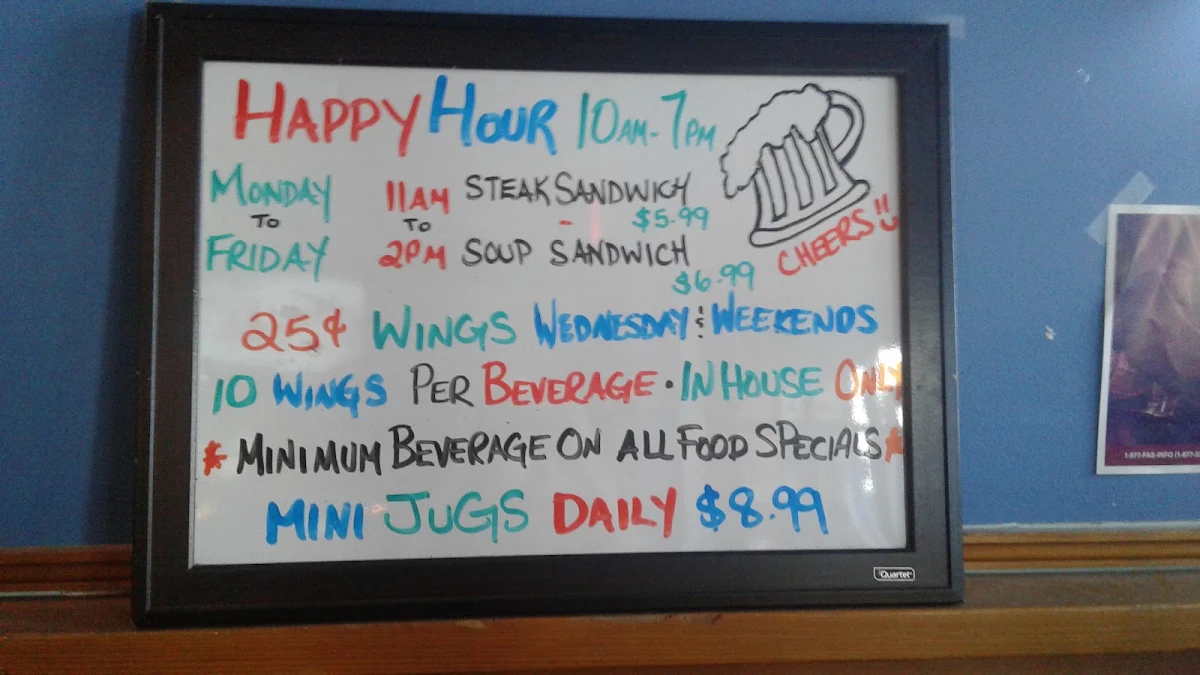 HAPPY HOUR 10AM-7PM
MONDAY 11AM STEAK SANDWICH
TO TO - $5.99
FRIDAY 2PM SOUP SANDWICH
$6.99
CHEERS!!
25¢ WINGS WEDNESDAY & WEEKENDS
10 WINGS PER BEVERAGE • IN HOUSE ONLY
* MINIMUM BEVERAGE ON ALL FOOD SPECIALS *
MINI JUGS DAILY $8.99
Quartet